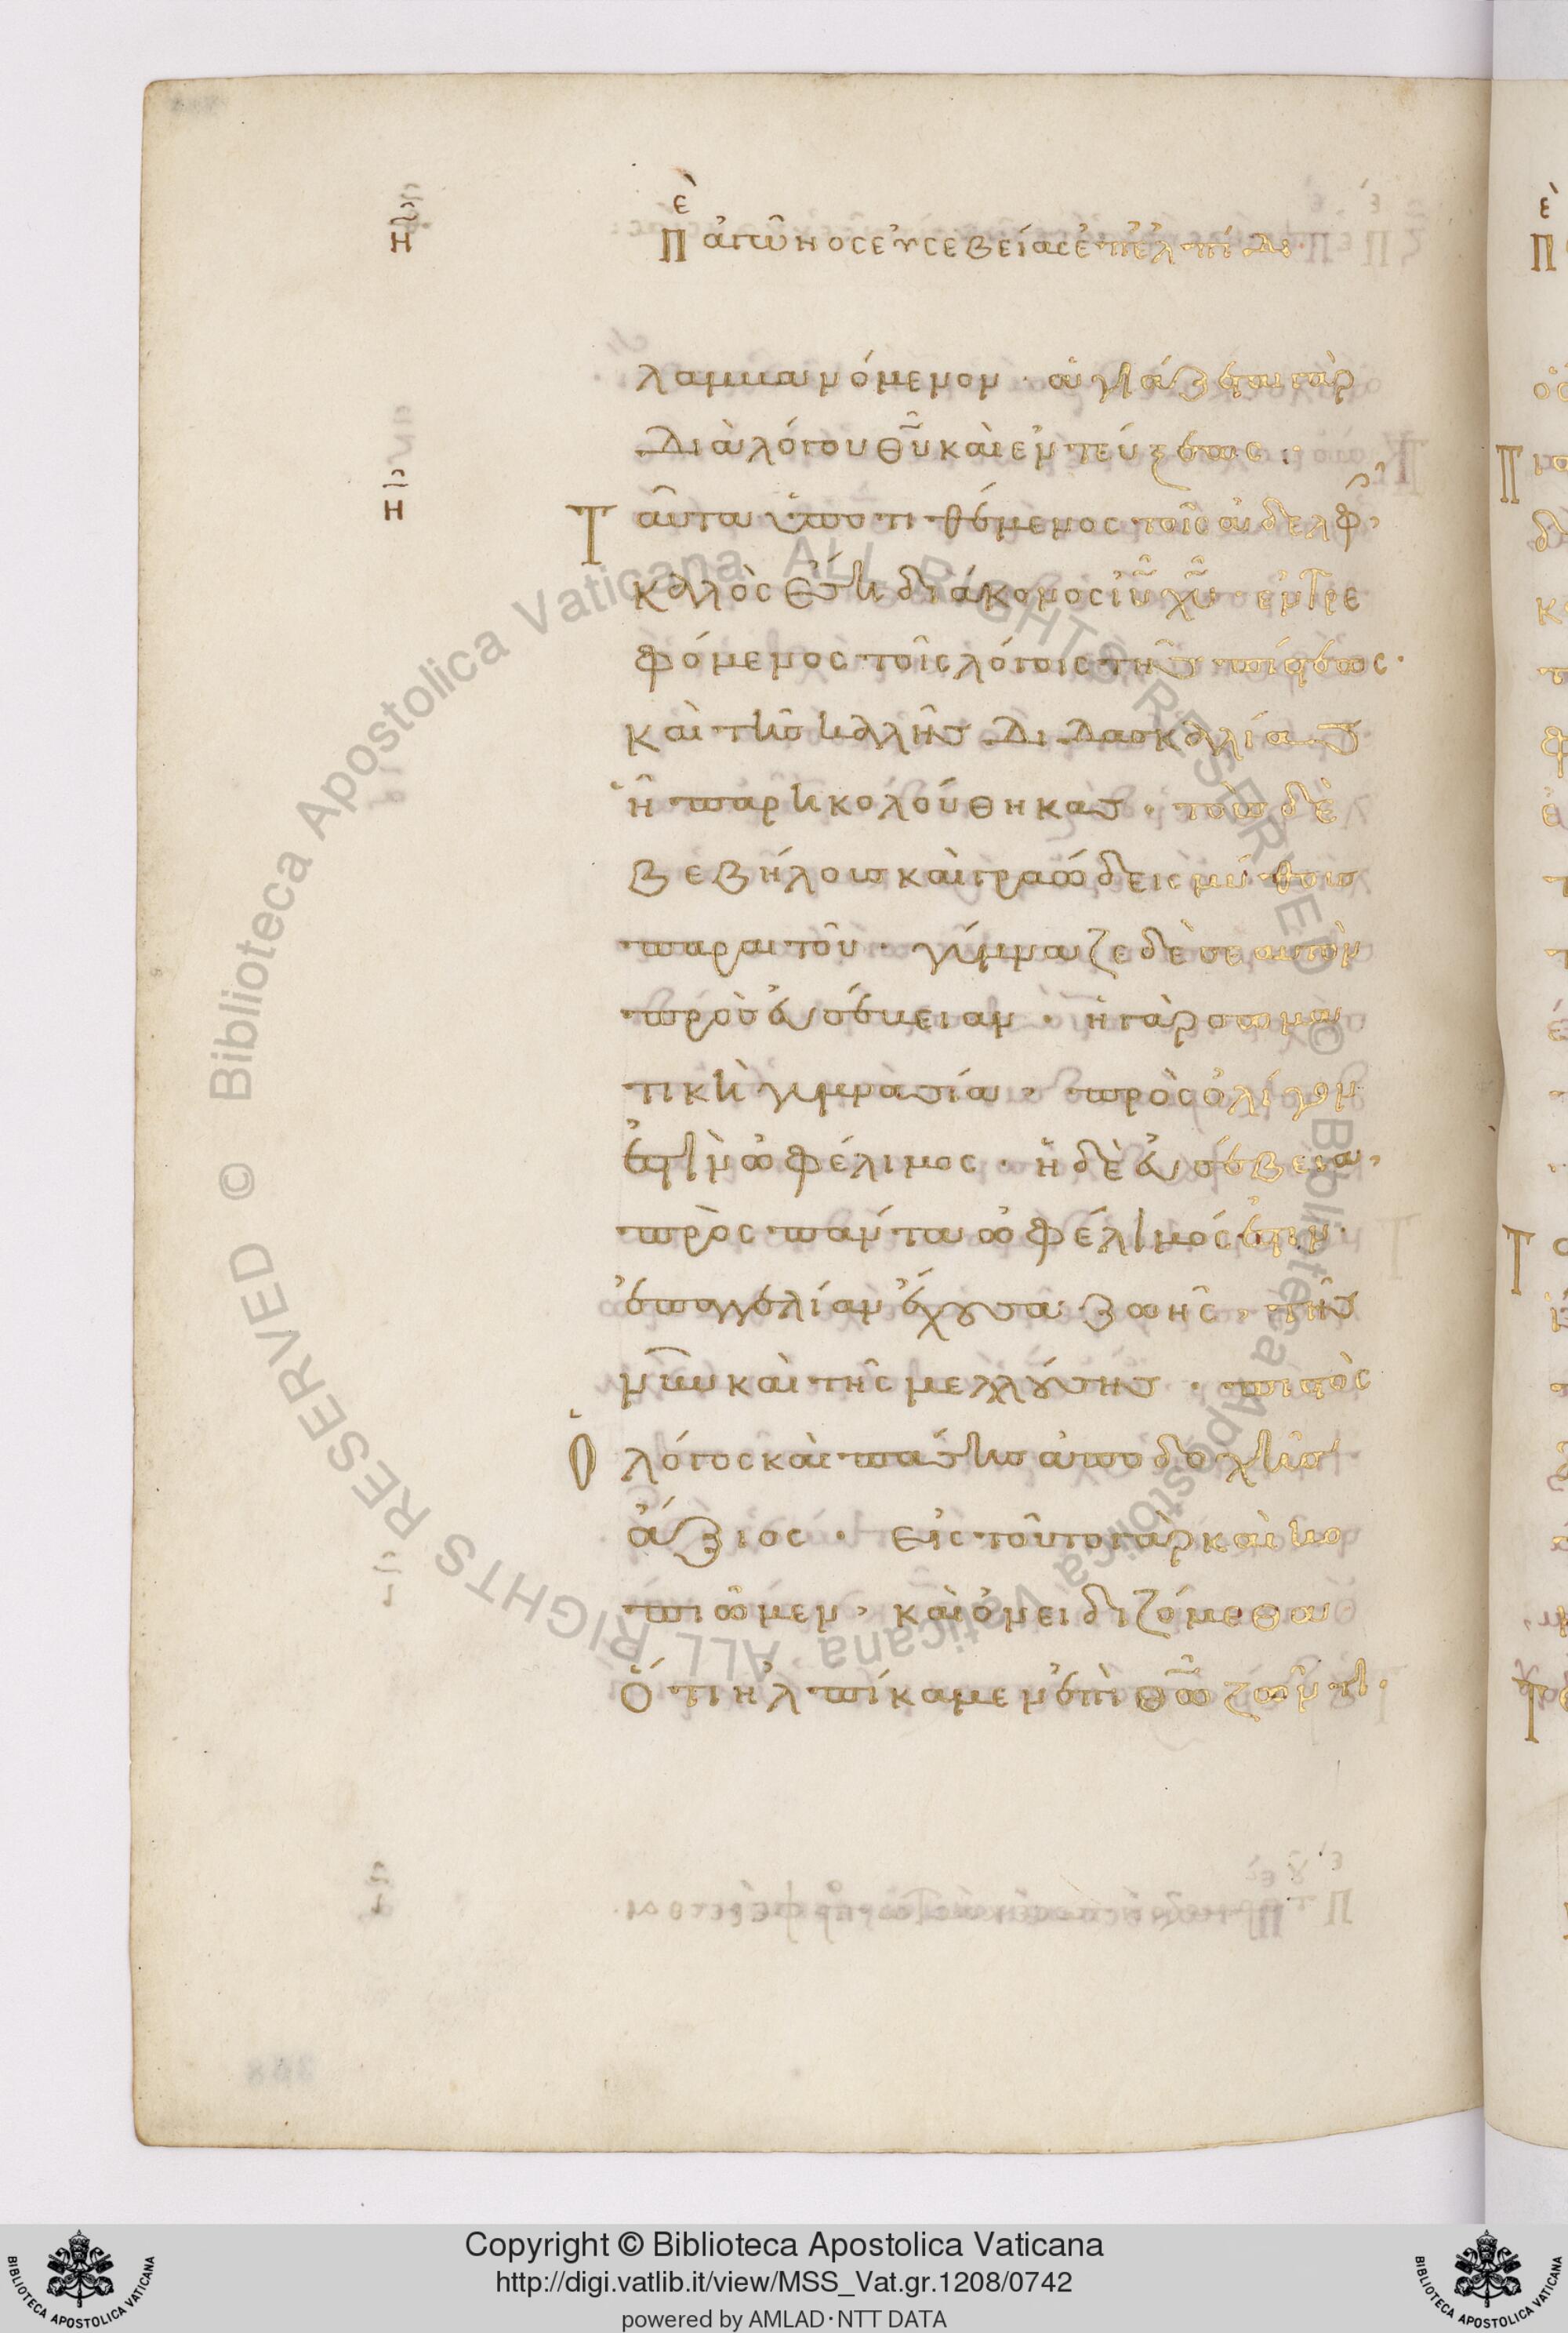 ὲ
Π ἀγῶνος εὐσεβείας ἐπ' ἐλπίδι
Η
λαμβανόμενον · ἁγιάζεται γὰρ
διὰ λόγου θ̅υ̅ καὶ ἐντεύξεως ·
Η
Ταῦτα ὑποτιθέμενος τοῖς ἀδελφ,
καλὸς ἔση διάκονος ι̅υ̅ χ̅υ̅ · ἐντρε
φόμενος τοῖς λόγοις τῆς πίστεως ·
καὶ τῆς καλῆς διδασκαλίας
ἧ παρηκολούθηκας · τοὺς δὲ
βεβήλους καὶ γραώδεις μύθους
παραιτοῦ · γύμναζε δὲ σεαυτὸν
πρὸς εὐσέβειαν · ἡ γὰρ σωμα
τικὴ γυμνασία, πρὸς ὀλίγον
ἐστὶν ὠφέλιμος · ἡ δὲ εὐσέβεια,
πρὸς πάντα ὠφέλιμός ἐστιν ·
ἐπαγγελίαν ἔχουσα ζωῆς, τῆς
νῦν καὶ τῆς μελλούσης · πιστὸς
Ὁ λόγος καὶ πάσης ἀποδοχῆς
ἄξιος · εἰς τοῦτο γὰρ καὶ κο
πιῶμεν, καὶ ὀνειδιζόμεθα
Ὅτι ἠλπίκαμεν ἐπὶ θ̅ω̅ ζῶντι ·
© Biblioteca Apostolica Vaticana ALL RIGHTS RESERVED © Biblioteca Apostolica Vaticana ALL RIGHTS RESERVED
Copyright © Biblioteca Apostolica Vaticana
http://digi.vatlib.it/view/MSS_Vat.gr.1208/0742
powered by AMLAD·NTT DATA
BIBLIOTECA APOSTOLICA VATICANA
BIBLIOTECA APOSTOLICA VATICANA